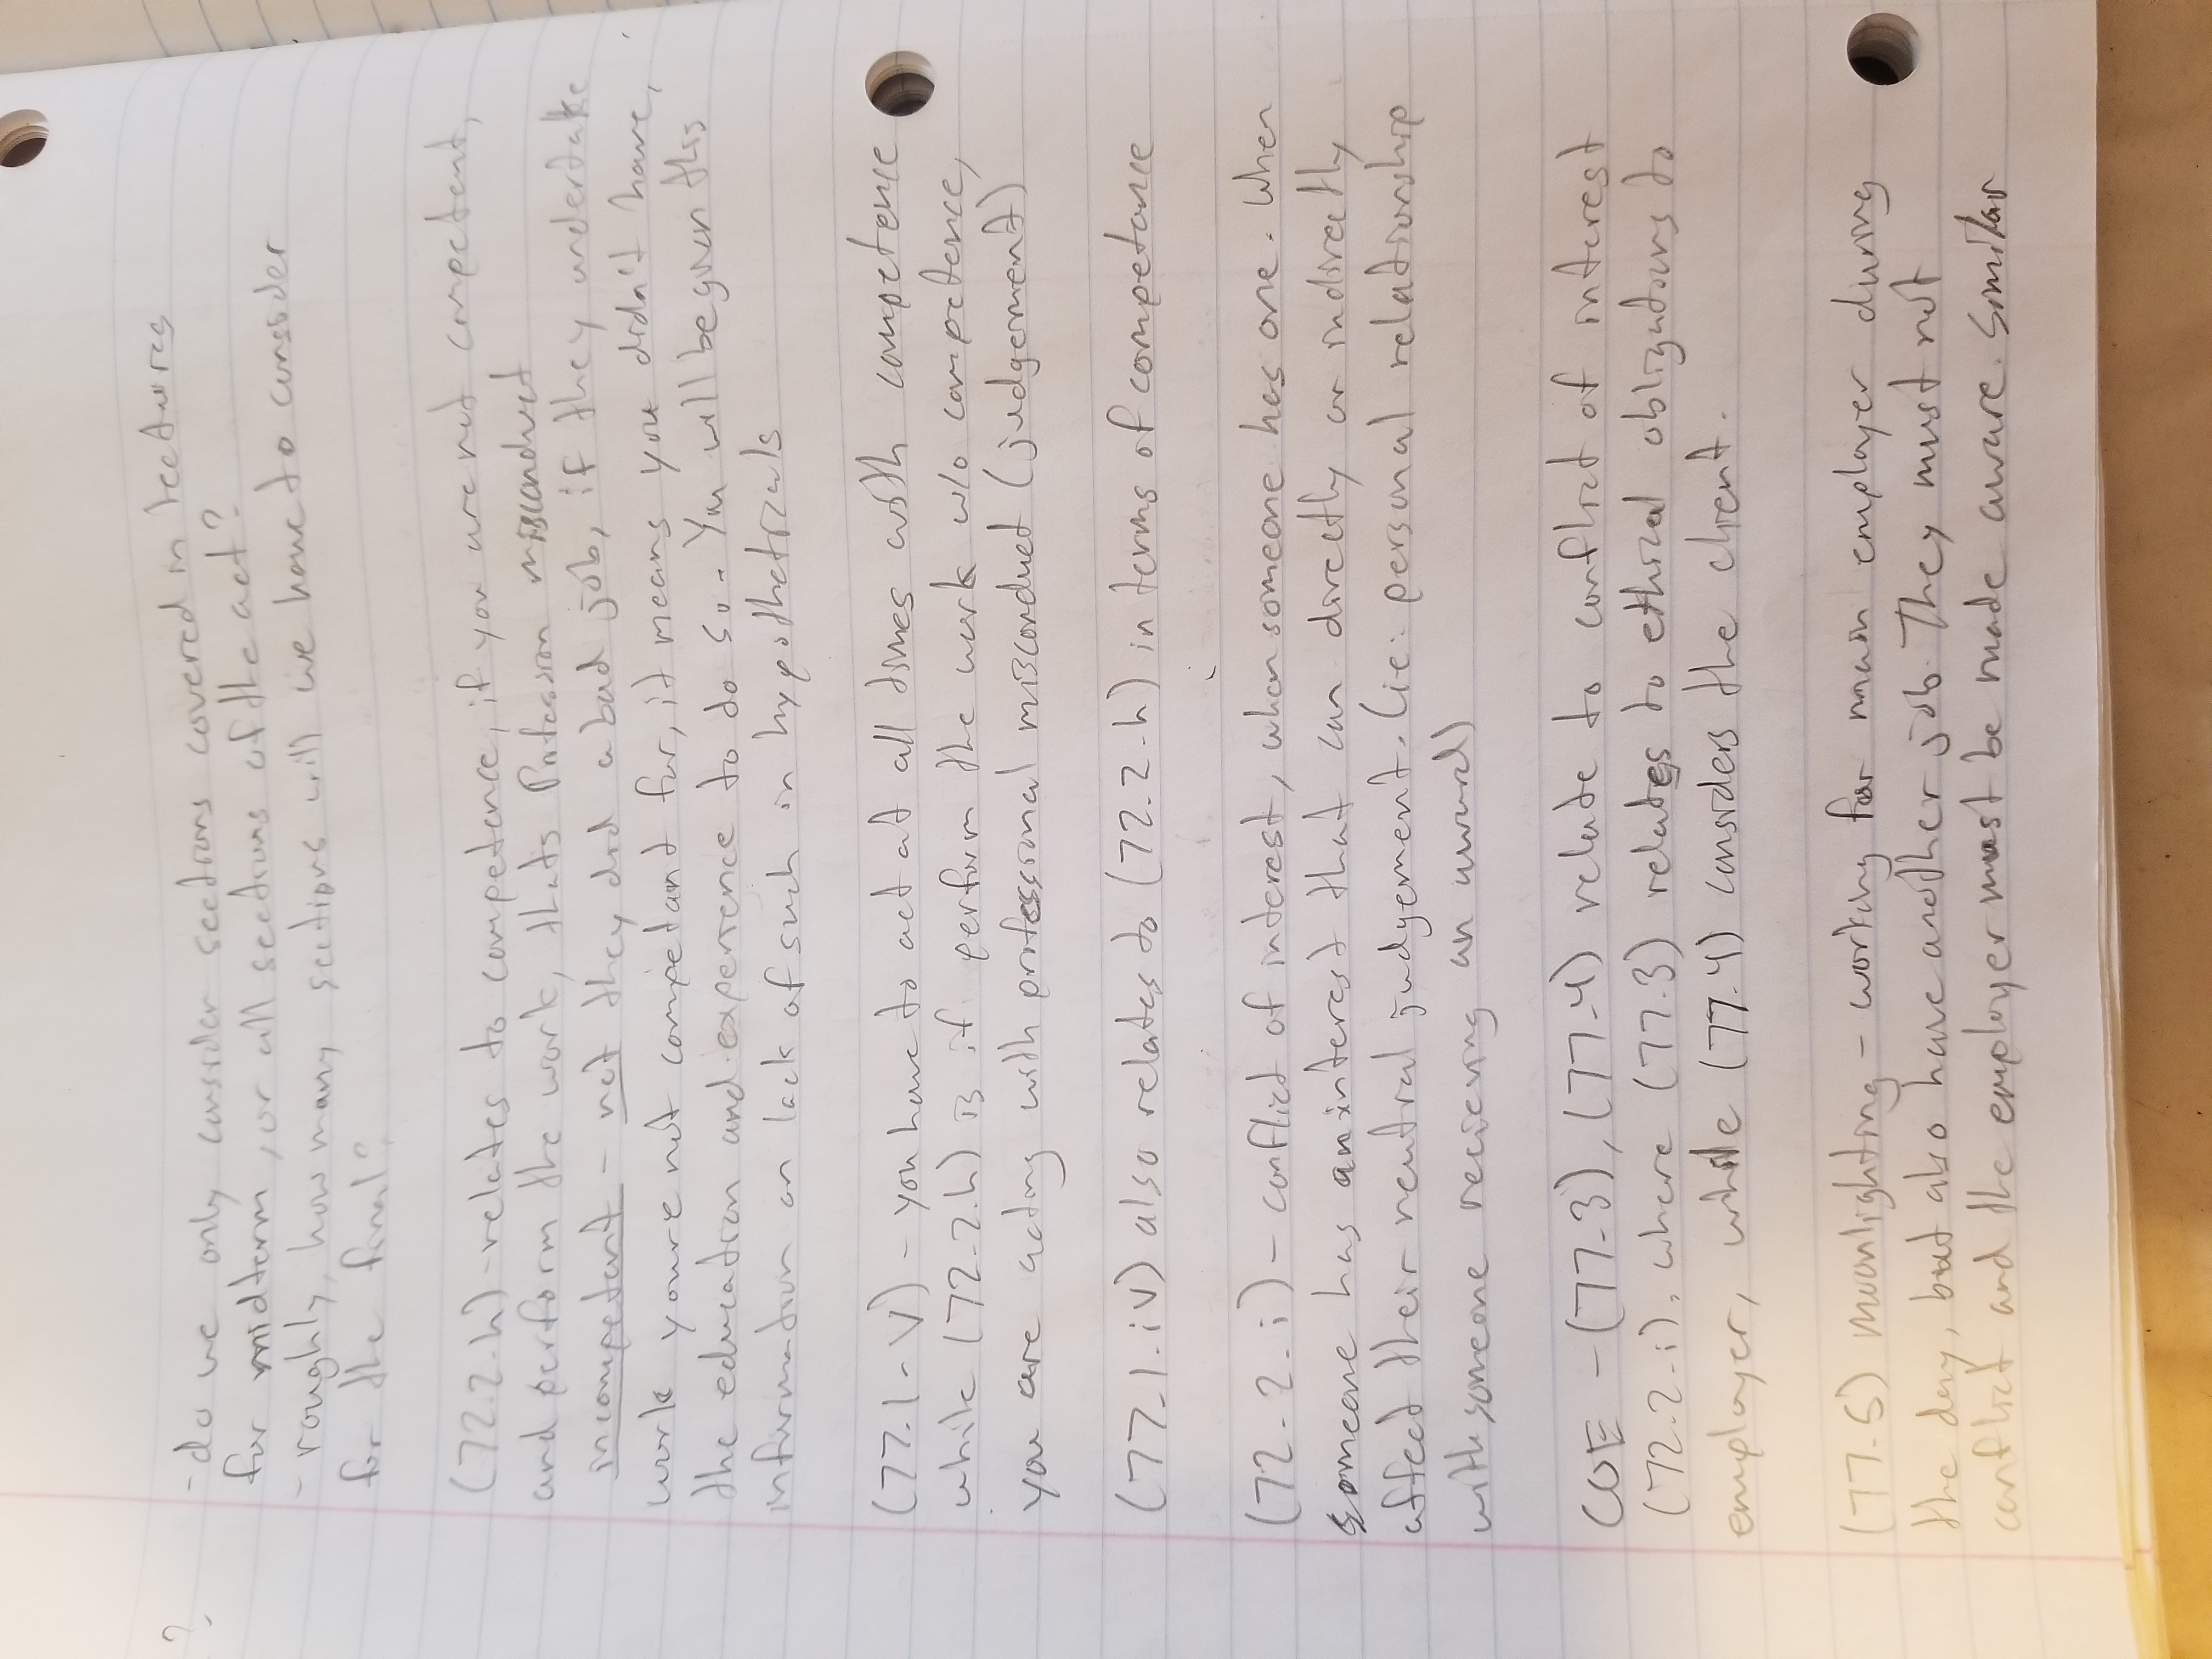 ?
- do we only consider sections covered in lectures
for midterm, or all sections of the act?
- roughly, how many sections will we have to consider
for the final?
(72.2-h) - relates to competence, if you are not competent,
and perform the work, thats Profession misconduct
incompetent - not they did a bad job, if they undertake
work youre not competant for, it means you didn't have,
the education and experience to do so.. You will be given this
information or lack of such in hypothetricals
(77.1-v) - you have to act at all times with competence
while (72-2.h) is if perform the work w/o competence,
you are acting with professional misconduct (judgement)
(77-1.iv) also relates to (72.2-h) in terms of competance
(72-2-i) - conflict of interest, when someone has one. When
someone has an interest that can directly or indirectly
affect their neutral judgement. (ie: personal relationship
with someone recieving an award)
COE - (77-3), (77-4) relate to conflict of interest
(72.2-i), where (77.3) relates to ethical obligations to
employer, while (77.4) considers the client.
(77.5) moonlighting - working for main employer during
the day, but also have another job. They must not
conflict and the employer must be made aware. Similar